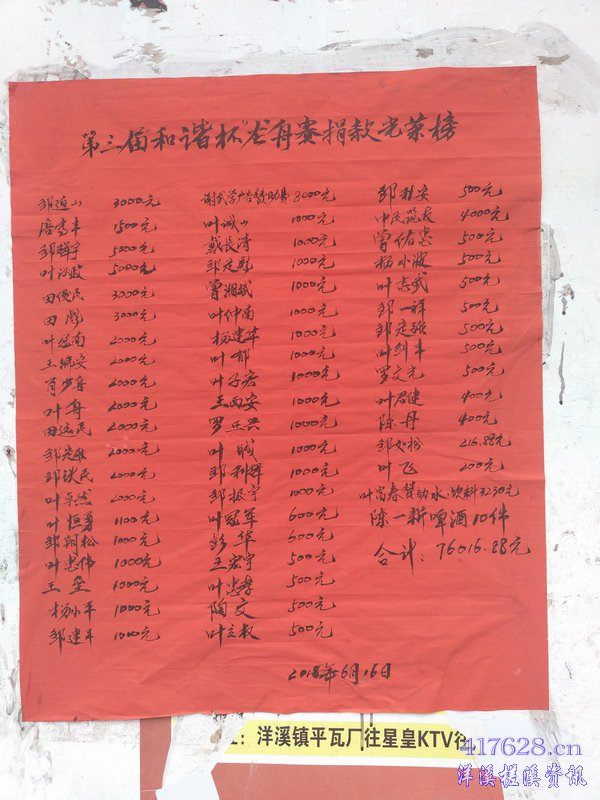 第三届"和谐杯"龙舟赛捐款光荣榜
3000元
唐高丰 1500元
5000元
5000元
田俊民 3000元
田彪 3000元
2000元
王瑞安 2000元
2000元
叶舟 2000元
田运民 2000元
2000元
2000元
叶卓然 2000元
叶恒勇 1100元
邹翔松 1000元
叶忠伟 1000元
王垒 1000元
杨小平 1000元
邹建平 1000元
3000元
叶诚山 1000元
戴长清 1000元
1000元
曾湘斌 1000元
叶仲南 1000元
杨建华 1000元
叶郁 1000元
叶子君 1000元
王西安 1000元
罗正兴 1000元
叶城 1000元
邹利群 1000元
邹振宇 1000元
叶冠军 600元
彭华 600元
王宏宇 500元
叶忠孝 500元
陶文 500元
叶立权 500元
500元
4000元
曾佑忠 500元
杨小波 500元
叶志武 500元
邹一祥 500元
500元
叶剑丰 500元
罗文光 500元
叶君健 400元
陈丹 400元
邹如松 216.88元
叶飞 200元
叶富春赞助水、饮料3230元
陈一新啤酒10件
合计：76016.88元
2018年6月16日
洋溪镇平瓦厂往星皇KTV往
417628.cn
洋溪槎溪资讯